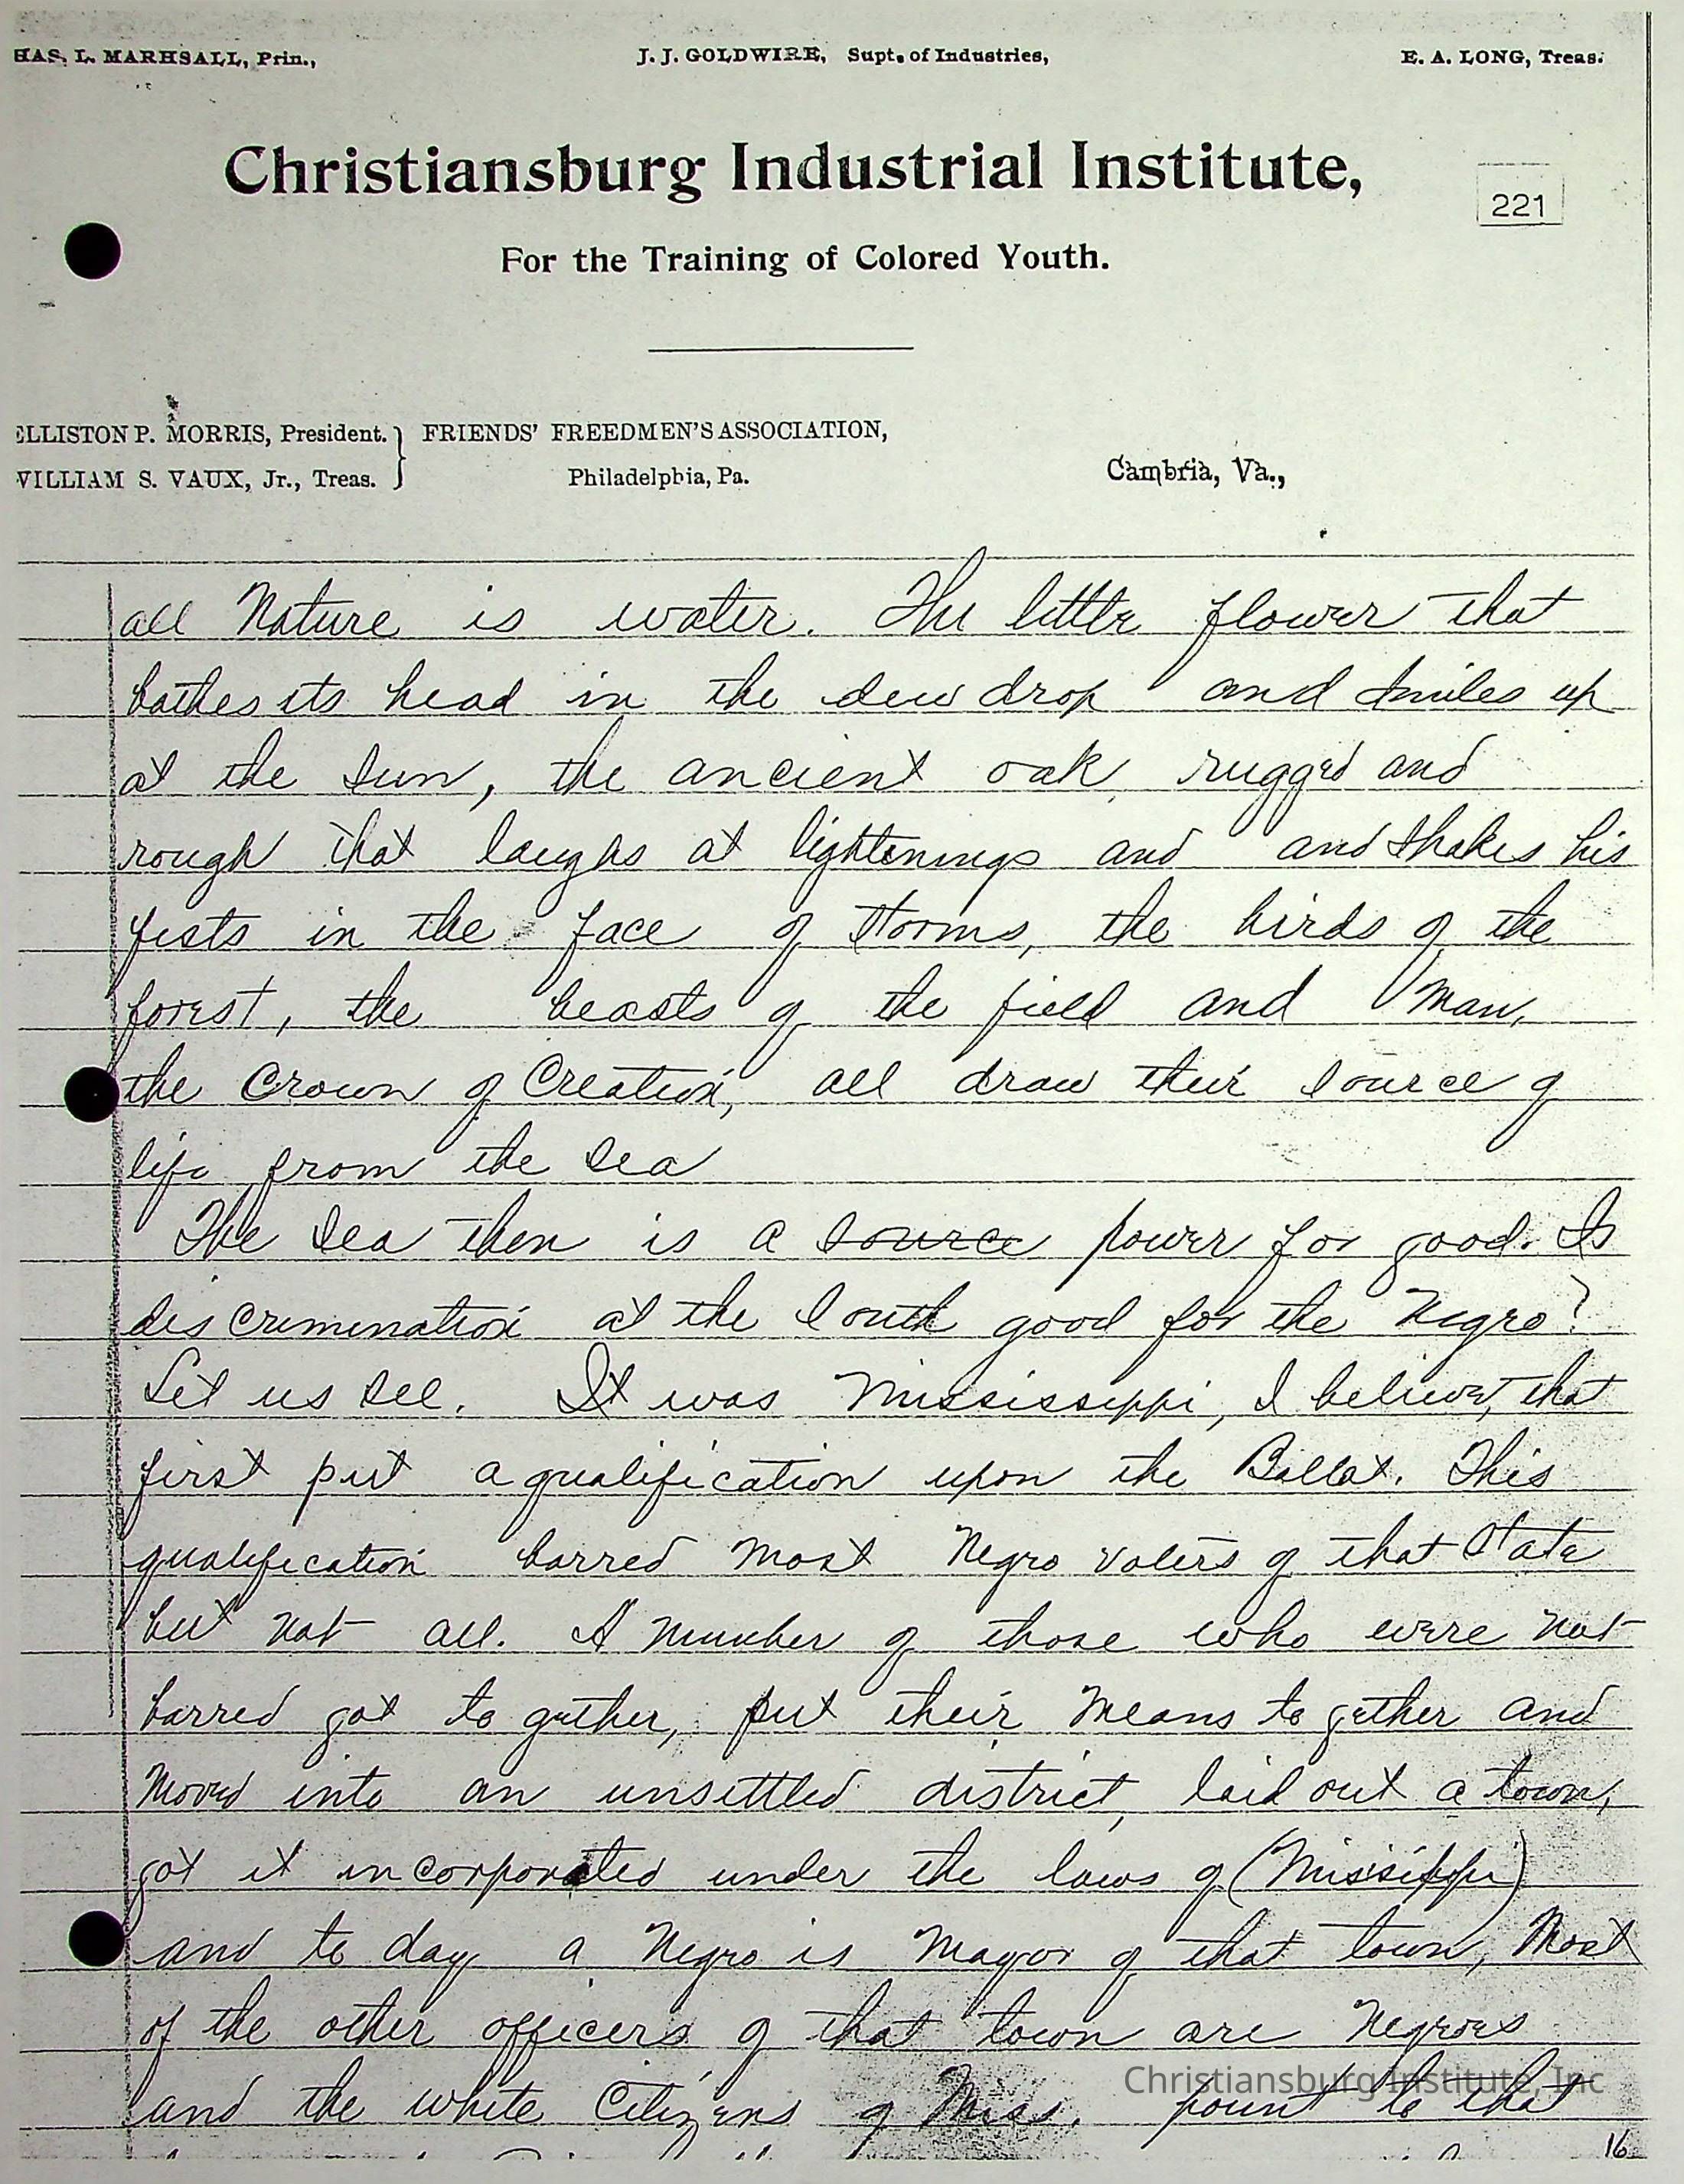 HAS. L. MARHSALL, Prin., J. J. GOLDWIRE, Supt. of Industries, E. A. LONG, Treas.
Christiansburg Industrial Institute,
221
For the Training of Colored Youth.
ELLISTON P. MORRIS, President. } FRIENDS' FREEDMEN'S ASSOCIATION,
WILLIAM S. VAUX, Jr., Treas. Philadelphia, Pa. Cambria, Va.,
all Nature is water. The little flower that
bathes its head in the dew drop and smiles up
at the sun, the ancient oak, rugged and
rough that laughs at lightenings and and shakes his
fists in the face of storms, the birds of the
forest, the beasts of the field and man,
the Crown of Creation, all draw their source of
life from the sea
The sea then is a source power for good. Is
discrimination at the South good for the Negro?
Let us see. It was Mississippi, I believe, that
first put a qualification upon the Ballot. This
qualification barred most Negro voters of that State
but not all. A number of those who were not
barred got to gether, put their means to gether and
moved into an unsettled district, laid out a town,
got it incorporated under the laws of (Missippi)
and to day a Negro is Mayor of that town, Most
of the other officers of that town are Negroes
and the white Citizens of Miss. point to that
Christiansburg Institute, Inc
16